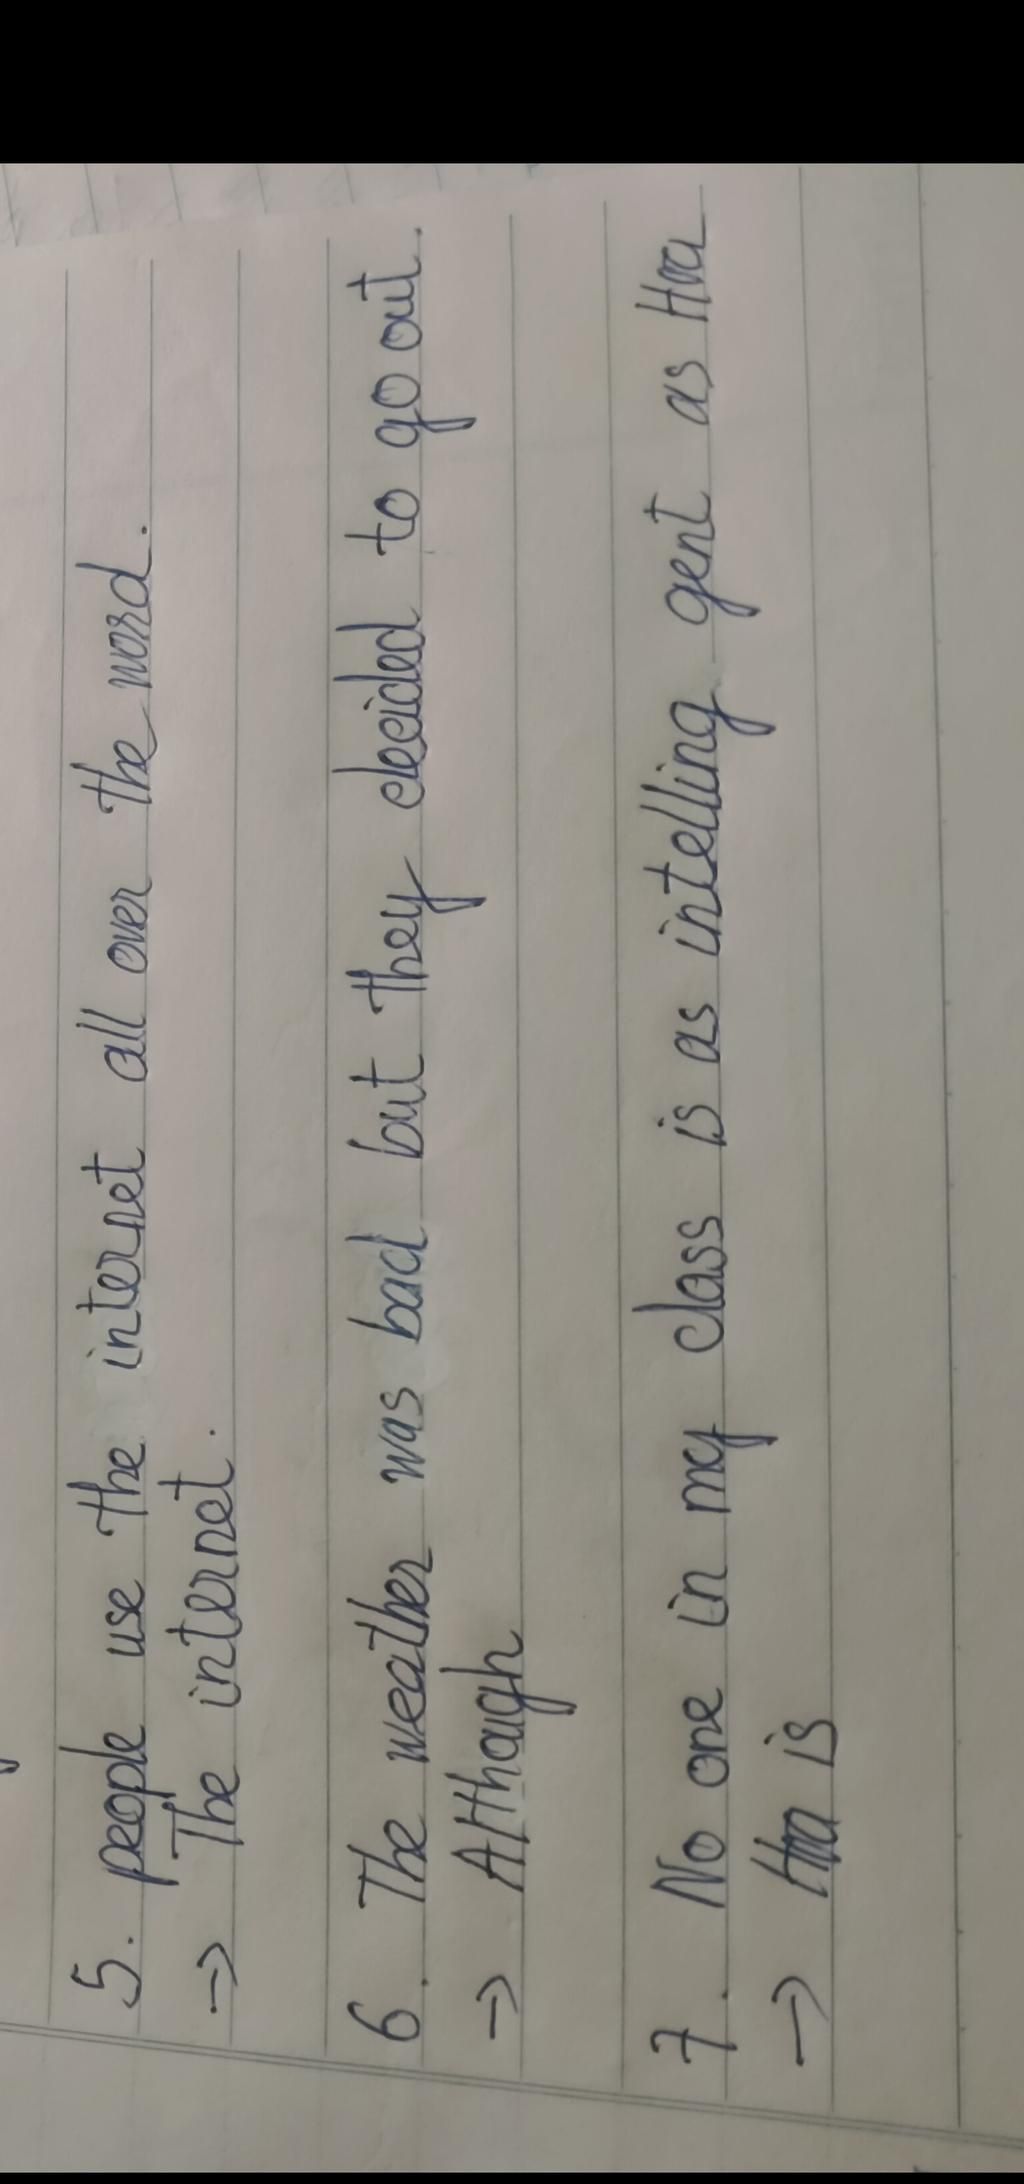 5. people use the internet all over the word.
→ The internet.
6. The weather was bad but they decided to go out.
→ Although
7. No one in my class is as intelling gent as Hoa
→ Hoa is